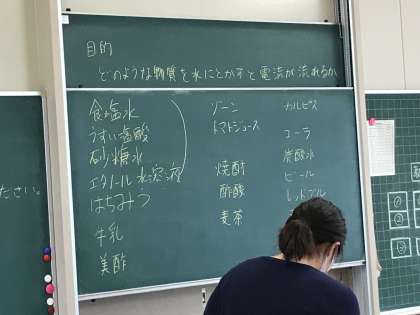 目的
どのような物質を水にとかすと電流が流れるか
食塩水
うすい塩酸
砂糖水
エタノール水溶液
はちみつ
牛乳
美酢
ゾーン
トマトジュース
焼酎
酢酸
麦茶
カルピス
コーラ
炭酸水
ビール
レッドブル
ださい。